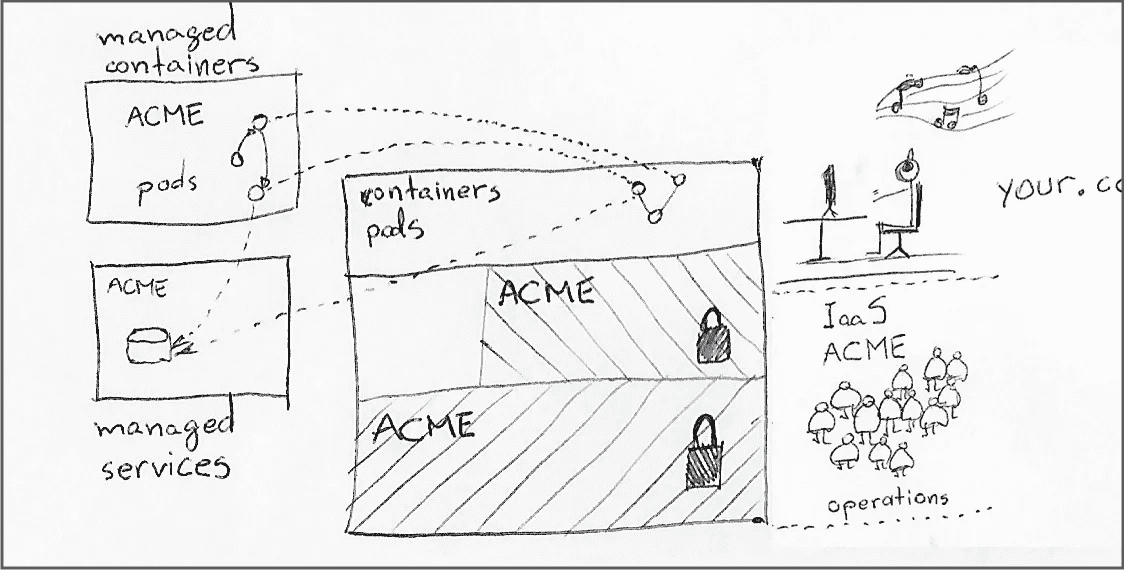 managed
containers
ACME
pods
ACME
managed
services
containers
pods
ACME
ACME
your.co
IaaS
ACME
operations